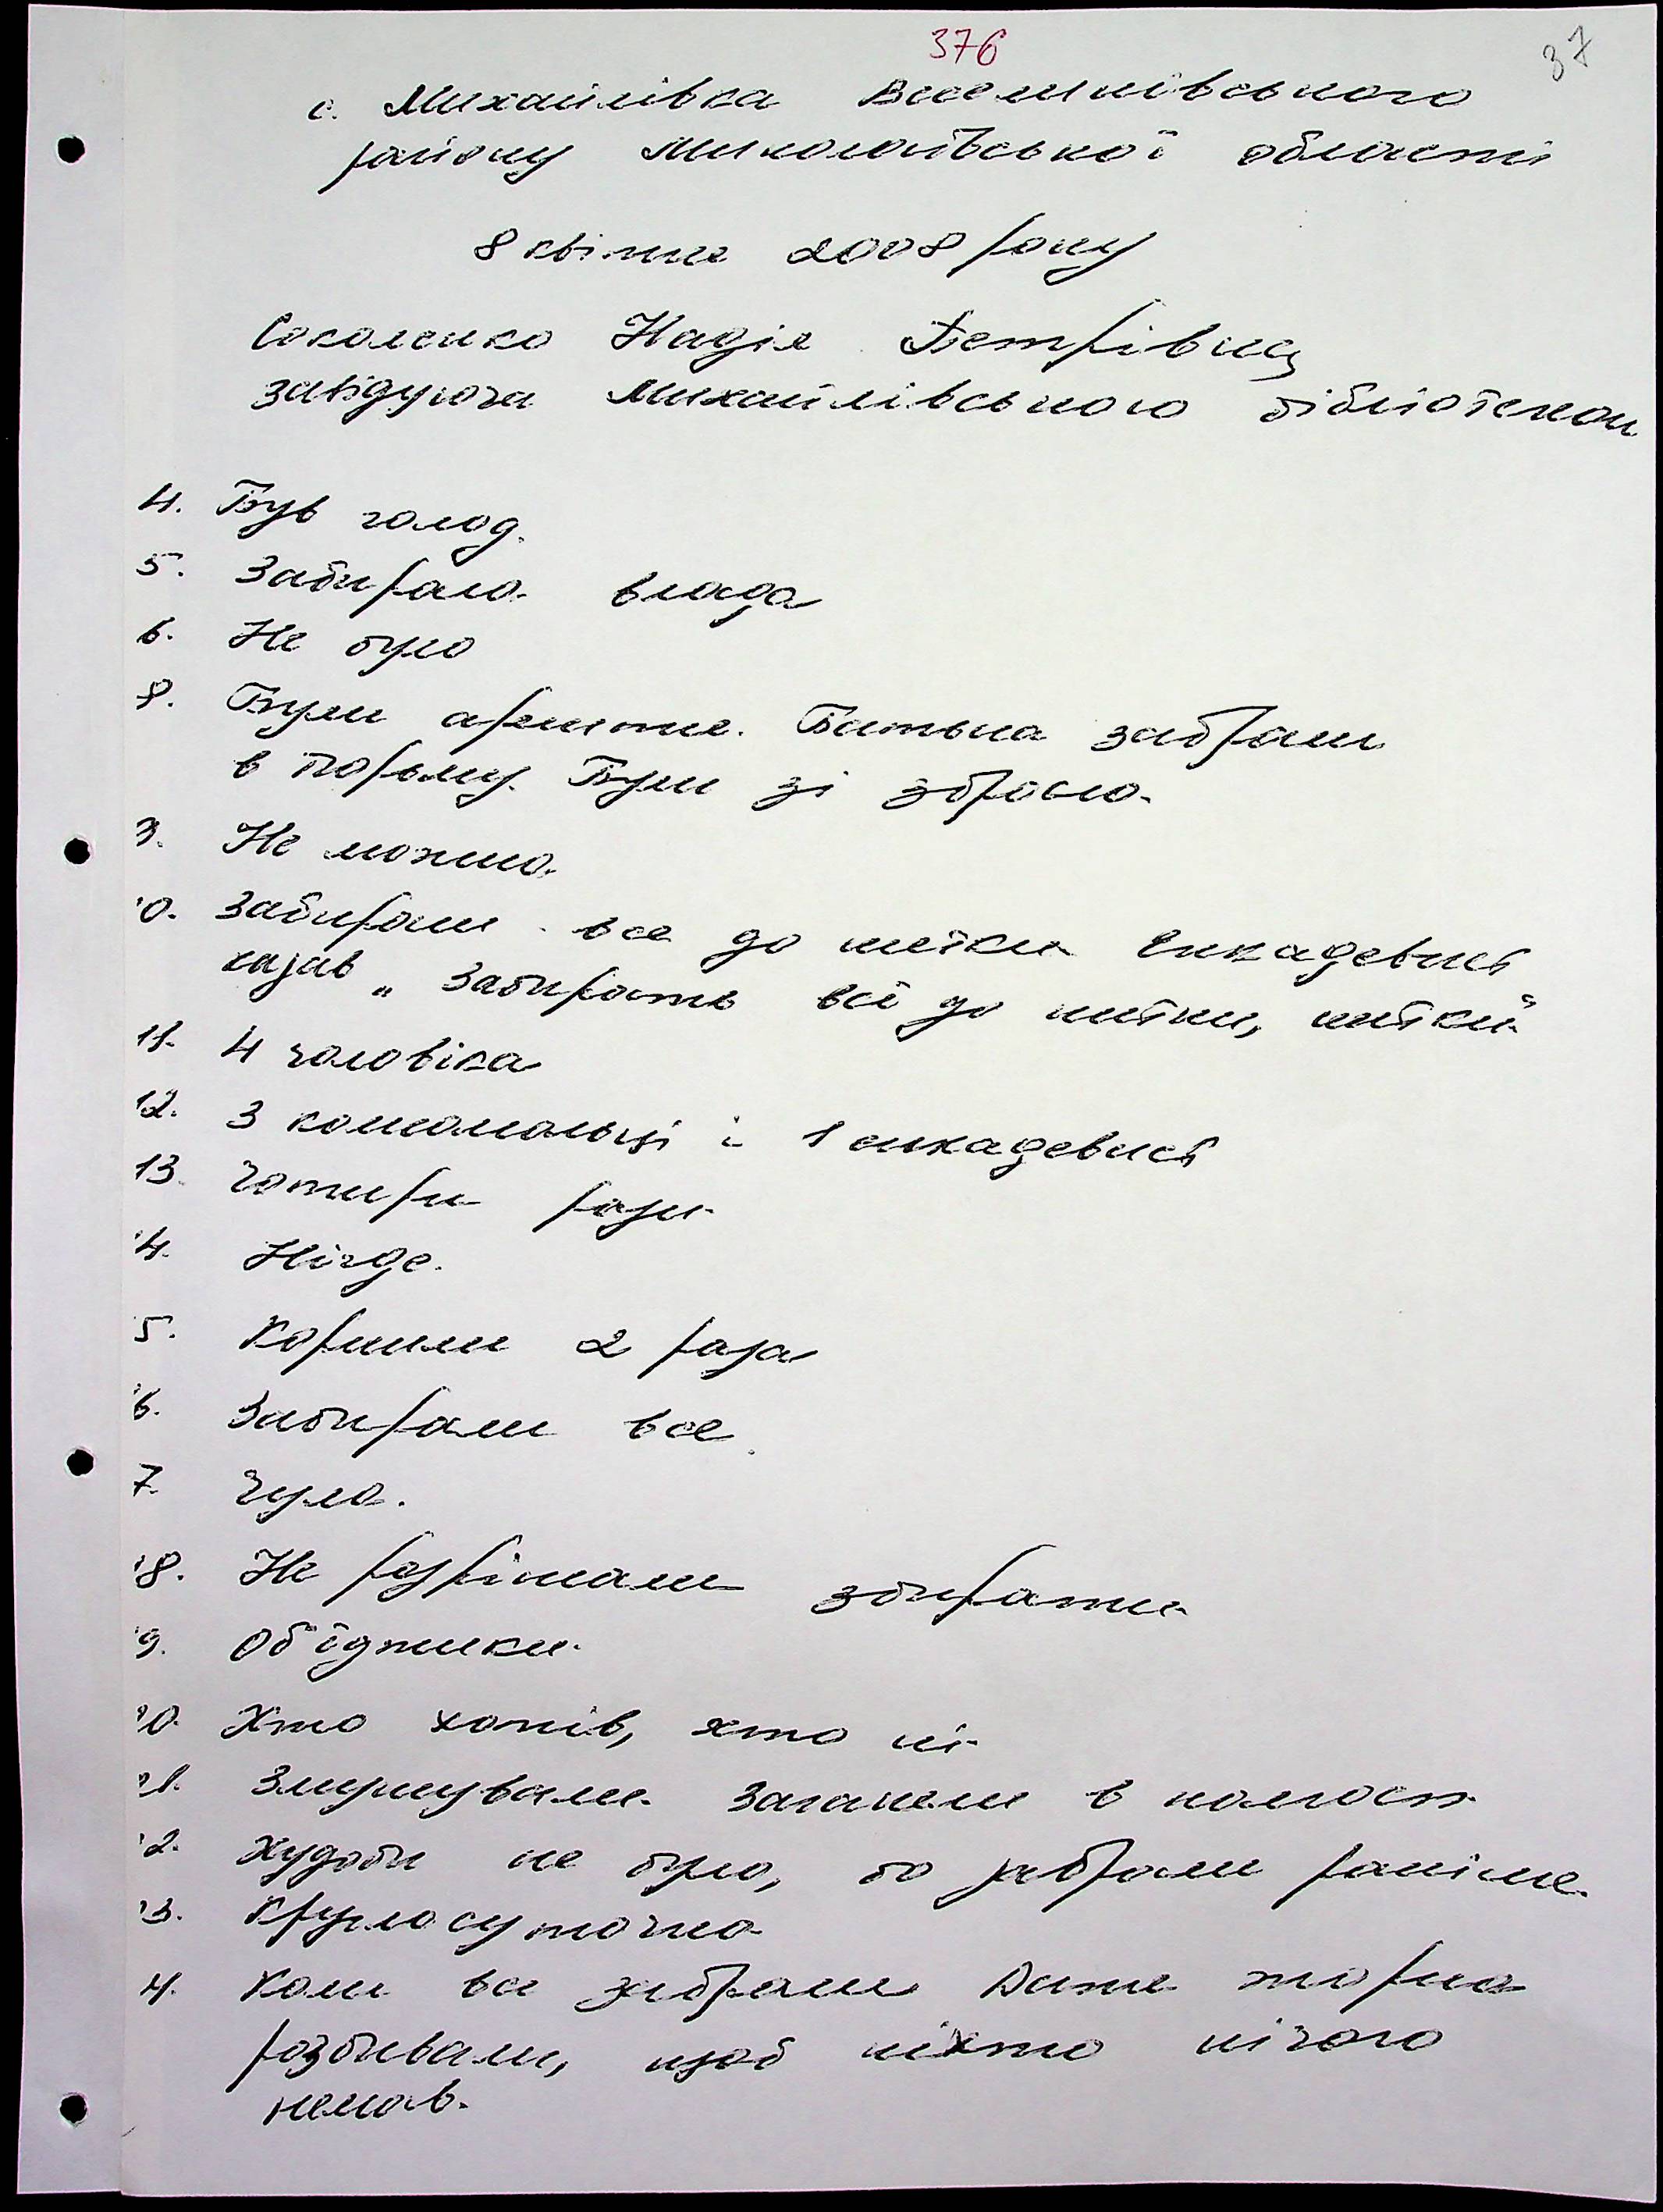 376
37
с. Михайлівка Веселинівського
району Миколаївської області
8 квітня 2008 року
Соколенко Надія Петрівна
завідуюча Михайлівською бібліотекою
4. Був голод.
5. Забирала влада
6. Не було
8. Були арешти. Батька забрали
в тюрьму. Були зі зброєю.
9. Не можна.
10. Забирали все до нитки енкадевист
казав „Забирать всі до нитки, нитки"
11. 4 чоловіка
12. 3 комсомольці і 1 енкадевист
13. Чотири рази
14. Нігде.
15. Кормили 2 раза
16. Забирали все.
17. Чула.
18. Не розрішали збирати
19. Об'їздчики.
20. Хто хотів, хто ні.
21. Змушували. Заганяли в колгосп.
22. Худоби не було, бо забрали раніше.
23. Круглосуточно
24. Коли все забрали Даже жорна
розбивали, щоб ніхто нічого
немав.